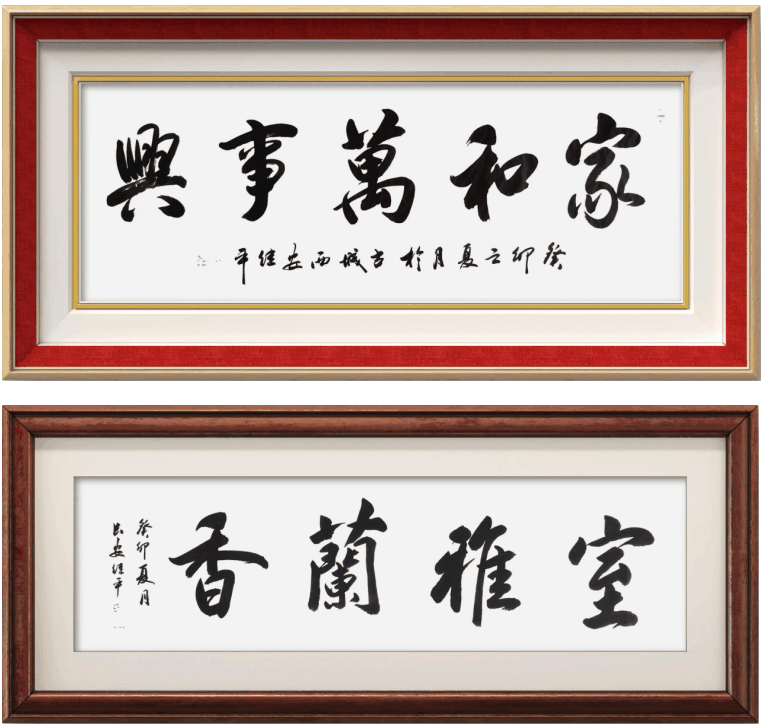 家和萬事興
癸卯之夏月於古城西安佳平
室雅蘭香
癸卯夏月
長安佳平